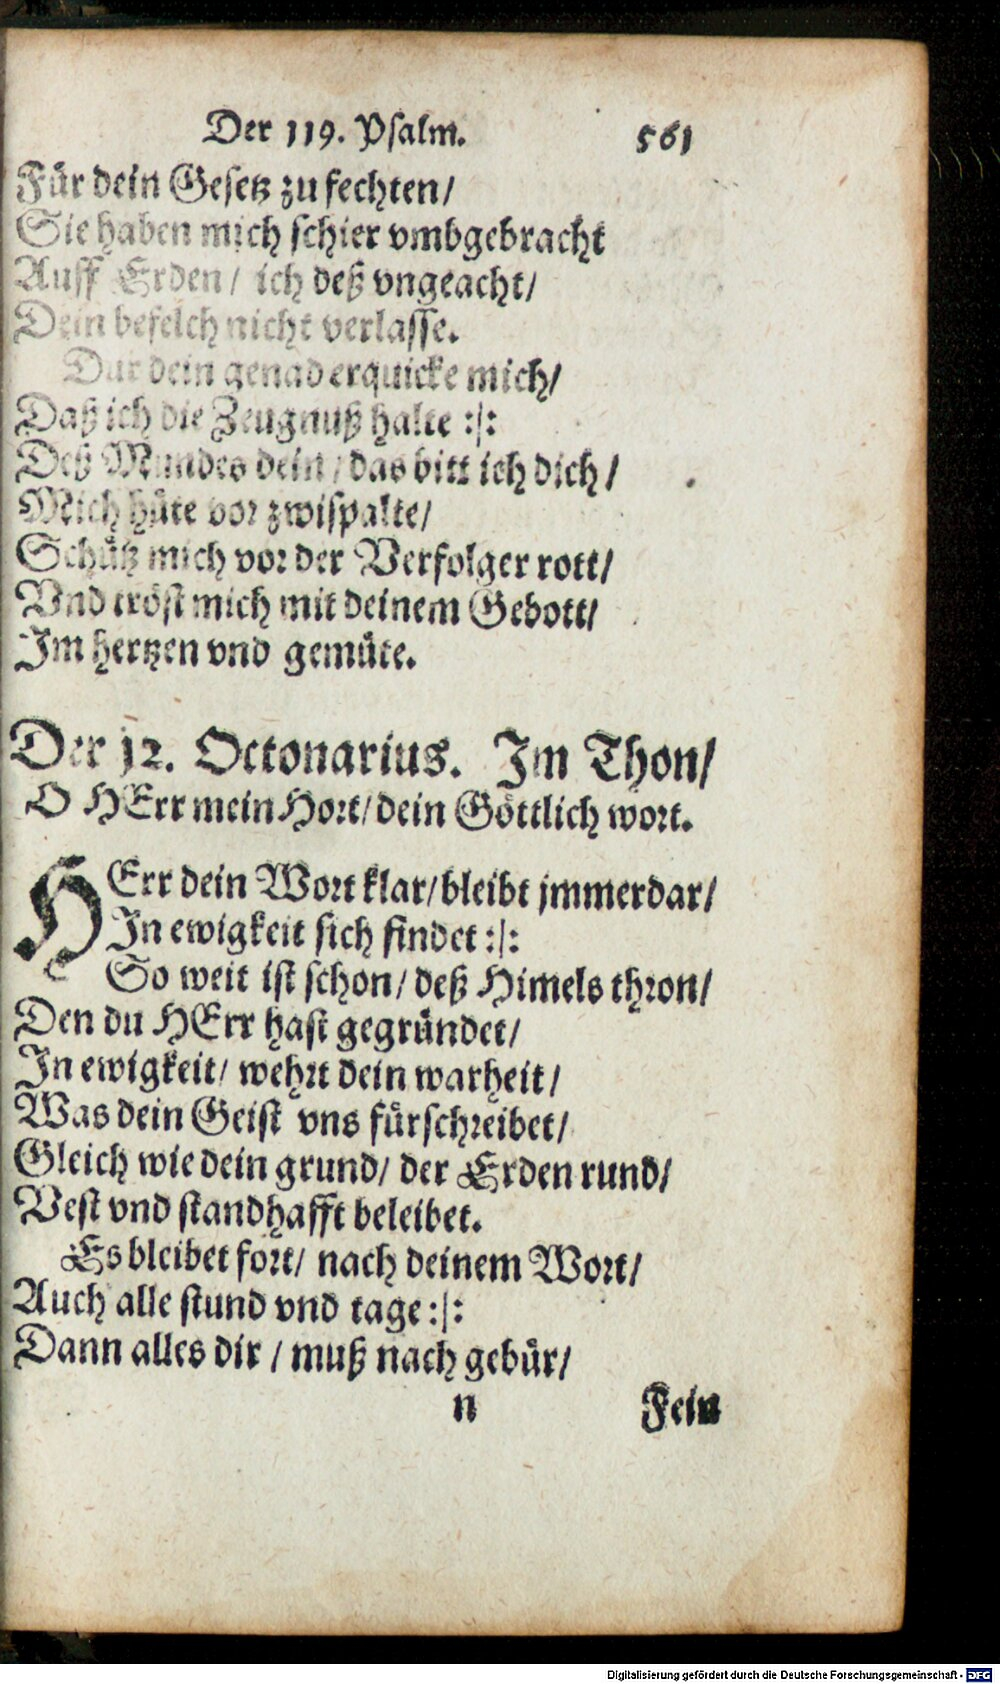 Der 119. Psalm. 561
Für dein Gesetz zu fechten/
Sie haben mich schier vmbgebracht
Auff Erden/ ich deß vngeacht/
Dein befelch nicht verlasse.
Dur dein genad erquicke mich/
Daß ich die Zeugnuß halte :/:
Deß Mundes dein / das bitt ich dich/
Mich hüte vor zwispalte/
Schütz mich vor der Verfolger rott/
Vnd tröst mich mit deinem Gebott/
Im hertzen vnd gemüte.
Der 12. Octonarius. Im Thon/
O HErr mein Hort/ dein Göttlich wort.
HErr dein Wort klar/ bleibt jmmerdar/
In ewigkeit sich findet :/:
So weit ist schon/ deß Himels thron/
Den du HErr hast gegründet/
In ewigkeit/ wehrt dein warheit/
Was dein Geist vns fürschreibet/
Gleich wie dein grund/ der Erden rund/
Vest vnd standhafft beleibet.
Es bleibet fort/ nach deinem Wort/
Auch alle stund vnd tage :/:
Dann alles dir / muß nach gebür/
n Fein
Digitalisierung gefördert durch die Deutsche Forschungsgemeinschaft - DFG